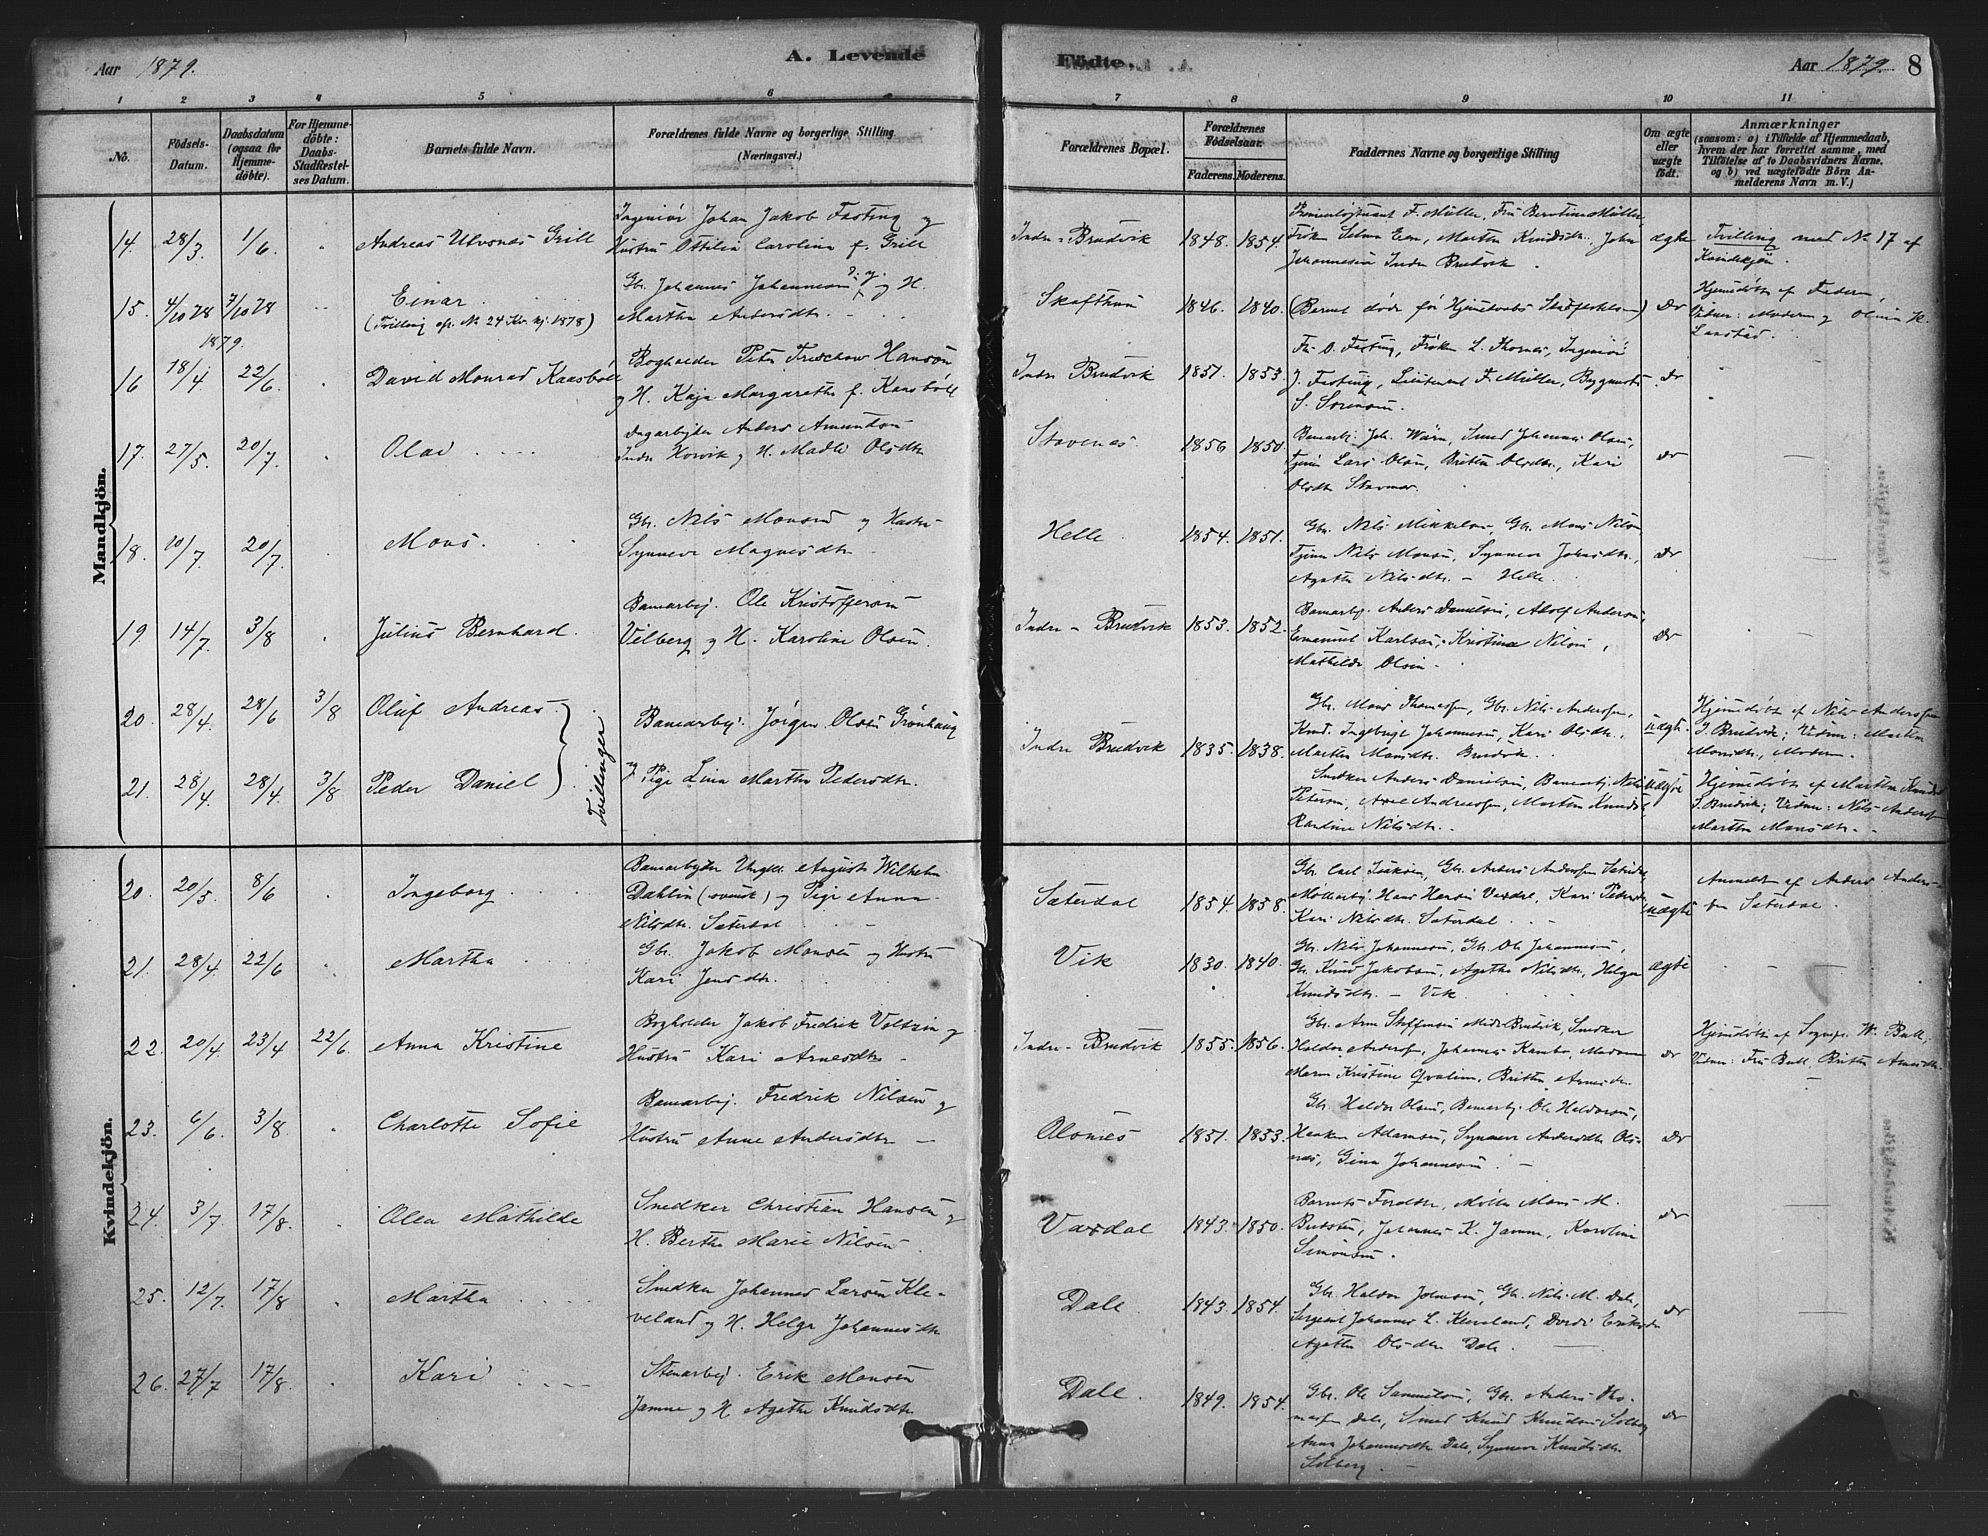 Aar 1879.
A. Levende
Födte.
Aar 1879.
8
1 2 3 4 5 6 7 8 9 10 11
No.
Födsels-Datum.
Daabsdatum (ogsaa for Hjemmedöbte).
For Hjemmedöbte: Daabs-Stadfæstelses Datum.
Barnets fulde Navn.
Forældrenes fulde Navne og borgerlige Stilling.
(Næringsvei.)
Forældrenes Bopæl.
Forældrenes Födselsaar.
Faderens. Moderens.
Faddernes Navne og borgerlige Stilling
Om ægte eller uægte födt.
Anmærkninger
(saasom: a) i Tilfælde af Hjemmedaab, hvem der har forrettet samme, med Tilföielse af to Daabsvidners Navne, og b) ved uægtefödte Börn Anmelderens Navn m. V.)
Mandkjön.
14. 28/3 1/6. Andreas Ulvsnes Grill
Ingeniør Johan Jakob Fasting og
Hustru Ottilia Carolina f. Grill
Indre-Brudvik 1848. 1854.
Premierløjtnant F. Müller, Fru Berntine Müller,
Frøken Selma Een, Martha Knudsdtr., John
Johannesen Indre Brudvik.
ægte
Tvilling med No 17 af
Kvindekjøn.
15. 4/10 78 7/10 78 Einar.
(Tvilling af No 24 Kv. kj. 1878)
Gbr. Johannes Johannesen og H.
Martha Andersdtr.
Skafthun 1846. 1840.
(Barnet døde før Hjemmedaabs Stadfæstelsen)
Do
Hjemdøbt af Faderen,
Vidner: Moderen og Olina H.
Langstad.
1879.
16 18/4 22/6. David Monrad Kaasböll
Bogholder Peter Fredchow Hansen
og H. Kaja Margarethe f. Kaasböll
Indre Brudvik 1851. 1853.
Fr. O. Fasting, Frøken L. Thornes, Ingeniør
J. Fasting, Lieutenant F. Müller, Bygmester
S. Sörensen.
Do
17. 27/5. 20/7. Olai
Dagarbejder Anders Amundsen
Indre Horvik og H. Madli Olsdtr.
Stavenes 1856 1850.
Banearb. Joh. Wärn, Smed Johannes Olsen,
Tjener Lars Olsen, Britha Olsdtr., Kari
Olsdtr. Stavenes.
Do
18. 10/7 20/7. Mons.
Gbr. Nils Monsen og Hustru
Synneve Magnesdtr.
Helle. 1854. 1851.
Gbr. Nils Mikkelsen, Gbr. Mons Nilsen
Tjener Nils Monsen, Synneve Johnsdtr.,
Agatha Nilsdtr. - Helle.
Do
19 14/7. 3/8 Julius Bernhard.
Banearbej. Ole Kristoffersen
Vilberg og H. Karoline Olsen.
Indre-Brudvik 1853. 1852.
Banearbej. Anders Danielsen, Adolf Andersen,
Emanuel Karlsen, Kristina Nilsen,
Mathilde Olsen.
Do
20. 28/4. 28/6 3/8 Oluf Andreas
21. 28/4. 28/4. 3/8 Peder Daniel
Tvillinger
Banearbej. Jørgen Olsen Grønhaug
og Pige Lina Martha Pedersdtr.
Indre Brudvik 1835. 1838.
Gbr. Mons Thomassen, Gbr. Nils Andersen,
Knud Ingebrigt Johannesen, Kari Olsdtr.,
Martha Monsdtr. Brudvik.
uægte.
Hjemdøbt af Nils Andersen
I. Brudvik; Vidner: Martha
Monsdtr., Moderen.
Snedker Anders Danielsen, Banearbj. Nils
Petersen, Axel Andreassen, Martha Knudsd.,
Randine Nilsdtr.
uægte
Hjemdøbt af Martha Knudsd.
I. Brudvik; Vidner: Nils Andersen
Martha Monsdtr.
Kvindekjön.
20. 20/5. 8/6 Ingeborg
Banearbejder Ungk. August Wilhelm
Dahlin (svensk) og Pige Anna
Nilsdtr. Sæterdal
Sæterdal 1854. 1858.
Gbr. Carl Isaksen, Gbr. Anders Andersen Sæterdal,
Møllearbj. Hans Hansen Vaxdal, Kari Pedersdtr.,
Kari Nilsdtr. Sæterdal.
uægte
Anmeldt af Anders Andersen
Sæterdal.
21. 28/4 22/6 Martha
Gbr. Jakob Monsen og Hustru
Kari Jensdtr.
Vik 1830. 1840.
Gbr. Nils Johannesen, Gbr. Ole Johannesen,
Gbr. Knud Jakobsen, Agatha Nilsdtr., Helga
Knudsdtr. - Vik
ægte
22. 20/4 23/4 22/6. Anna Kristine
Bogholder Jakob Fredrik Voltzin og
Hustru Kari Arnesdtr.
Indre-Brudvik 1855. 1856.
Gbr. Arne Steffensen Midt-Brudvik, Snedker
Haldor Andersen, Johannes Kambo, Madam
Maren Kristine Qvalim, Britha Arnesdtr.
Do
Hjemdøbt af Sognepr. W. Bull,
Vidner: Fru Bull, Britha Arnesdtr.
23. 6/6. 3/8. Charlotte Sofie
Banearbej. Fredrik Nilsen og
Hustru Anne Andersdtr.
Olsnes 1851. 1853.
Gbr. Haldor Olsen, Banearbj. Ole Haldorsen,
Haaken Adamsen, Synneve Andersdtr. Olsnæs,
Gina Johannesen.
Do
24. 3/7. 17/8. Olea Mathilde
Snedker Christian Hansen og
H. Berthe Marie Nilsen.
Vaxdal 1843. 1850.
Barnets Forældre, Møller Mons M.
Johannes K. Jamne, Karoline
Simonsen.
Do
25. 12/7. 17/8 Martha
Snedker Johannes Larsen Kleveland
og H. Helga Johannesdtr.
Dale. 1843. 1854.
Gbr. Haldor Johnsen, Gbr. Nils M. Dale,
Sergeant Johannes L. Kleveland, Dordi Eriksdtr.
Agatha Olsdtr. Dale.
Do
26. 27/7 17/8. Kari
Stenarbej. Erik Monsen
Jamne og H. Agatha Knudsdtr.
Dale. 1849. 1854.
Gbr. Ole Samuelsen, Gbr. Anders Thomassen
Dale, Smed Knud Knudsen Solberg
Anna Johannesdtr. Dale, Synneve Knudsdtr.
Solberg.
Do